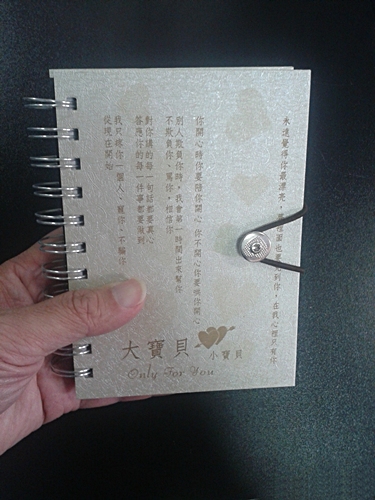 從現在開始
我只疼你一個人,寵你,不騙你
答應你的每一件事都要做到
對你講的每一句話都要真心
不欺負你,罵你,相信你
別人欺負你時,我會第一時間出來幫你
你開心時你要陪你開心 你不開心你要哄你開心
永遠覺得你最漂亮,面也要到你,在我心裡只有你
大寶貝
小寶貝
Only For You